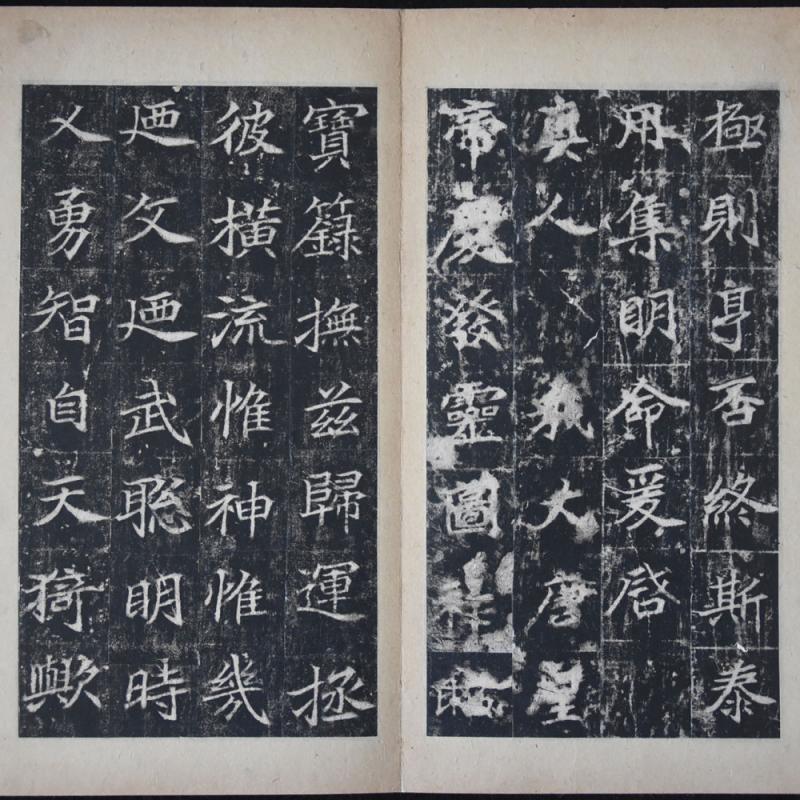 極則亨否終斯泰
用集明命爰啓
真人我大唐皇
帝慶發靈圖祥昭
寶籙撫茲歸運拯
彼橫流惟神惟幾
廼文廼武聰明時
乂勇智自天猗歟